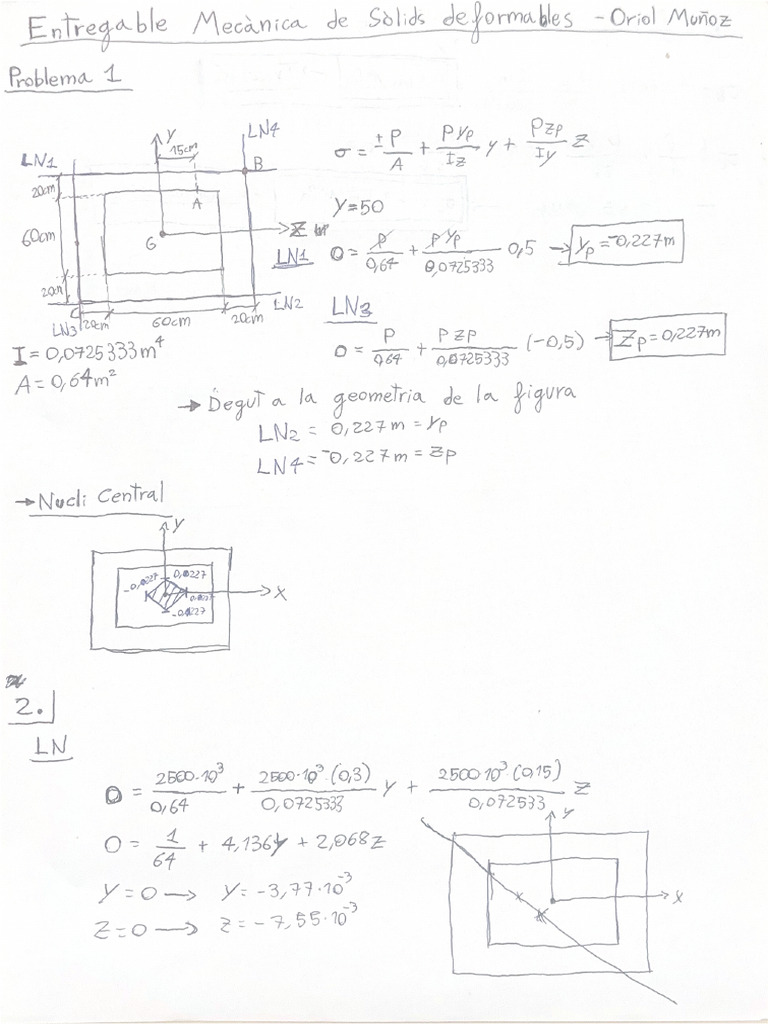 Entregable Mecànica de Sòlids deformables - Oriol Muñoz
Problema 1
LN4
y
15cm
LN1
B
20cm
A
60cm
G
Z
20cm
C
LN2
LN3
20cm 60cm 20cm
I = 0,0725333m⁴
A = 0,64m²
σ = ±P/A + P yp/Iz y + P zp/Iy z
Y=50
LN1 0 = P/0,64 + P yp/0,0725333 0,5 → yp = -0,227m
LN3
0 = P/0,64 + P zp/0,0725333 (-0,5) → Zp = 0,227m
→ Degut a la geometria de la figura
LN2 = 0,227m = yp
LN4 = -0,227m = zp
→ Nucli Central
y
-0,0227 0,0227
0,0227
-0,0227
X
2.
LN
0 = 2500·10³/0,64 + 2500·10³·(0,3)/0,0725333 y + 2500·10³·(0,15)/0,072533 z
0 = 1/64 + 4,136y + 2,068z
Y = 0 → y = -3,77·10⁻³
Z = 0 → z = -7,55·10⁻³
y
x